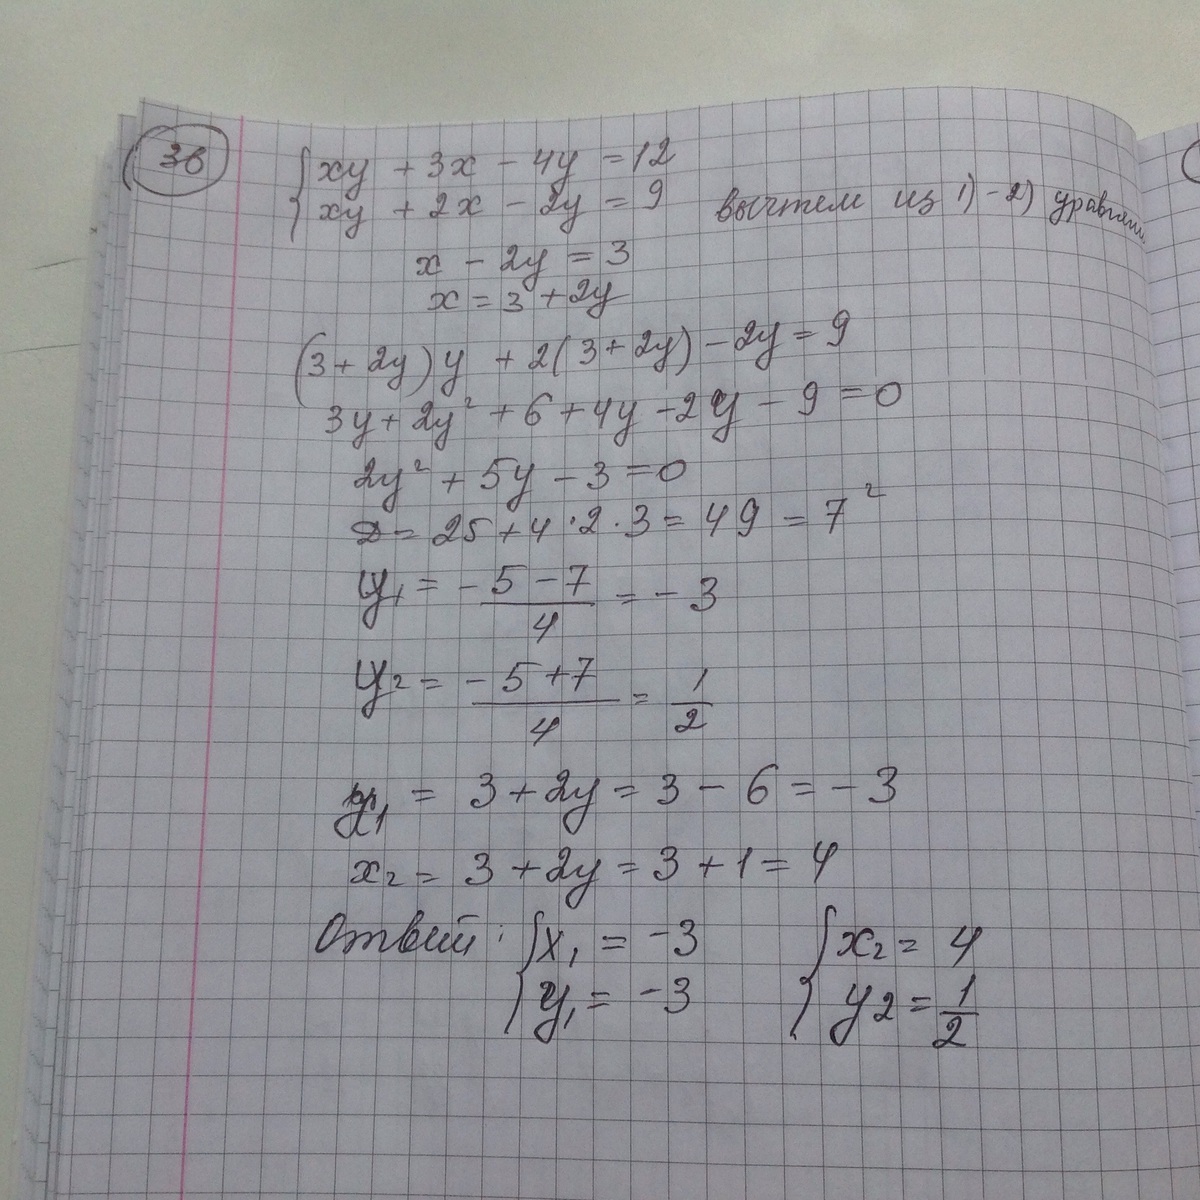 3в
{xy + 3x - 4y = 12
{xy + 2x - 2y = 9 вычтем из 1) - 2)
x - 2y = 3
x = 3 + 2y
(3 + 2y)y + 2(3 + 2y) - 2y = 9
3y + 2y² + 6 + 4y - 2y - 9 = 0
2y² + 5y - 3 = 0
D = 25 + 4·2·3 = 49 = 7²
y₁ = (-5 - 7)/4 = -3
y₂ = (-5 + 7)/4 = 1/2
x₁ = 3 + 2y = 3 - 6 = -3
x₂ = 3 + 2y = 3 + 1 = 4
Ответ: {x₁ = -3 {x₂ = 4
{y₁ = -3 {y₂ = 1/2